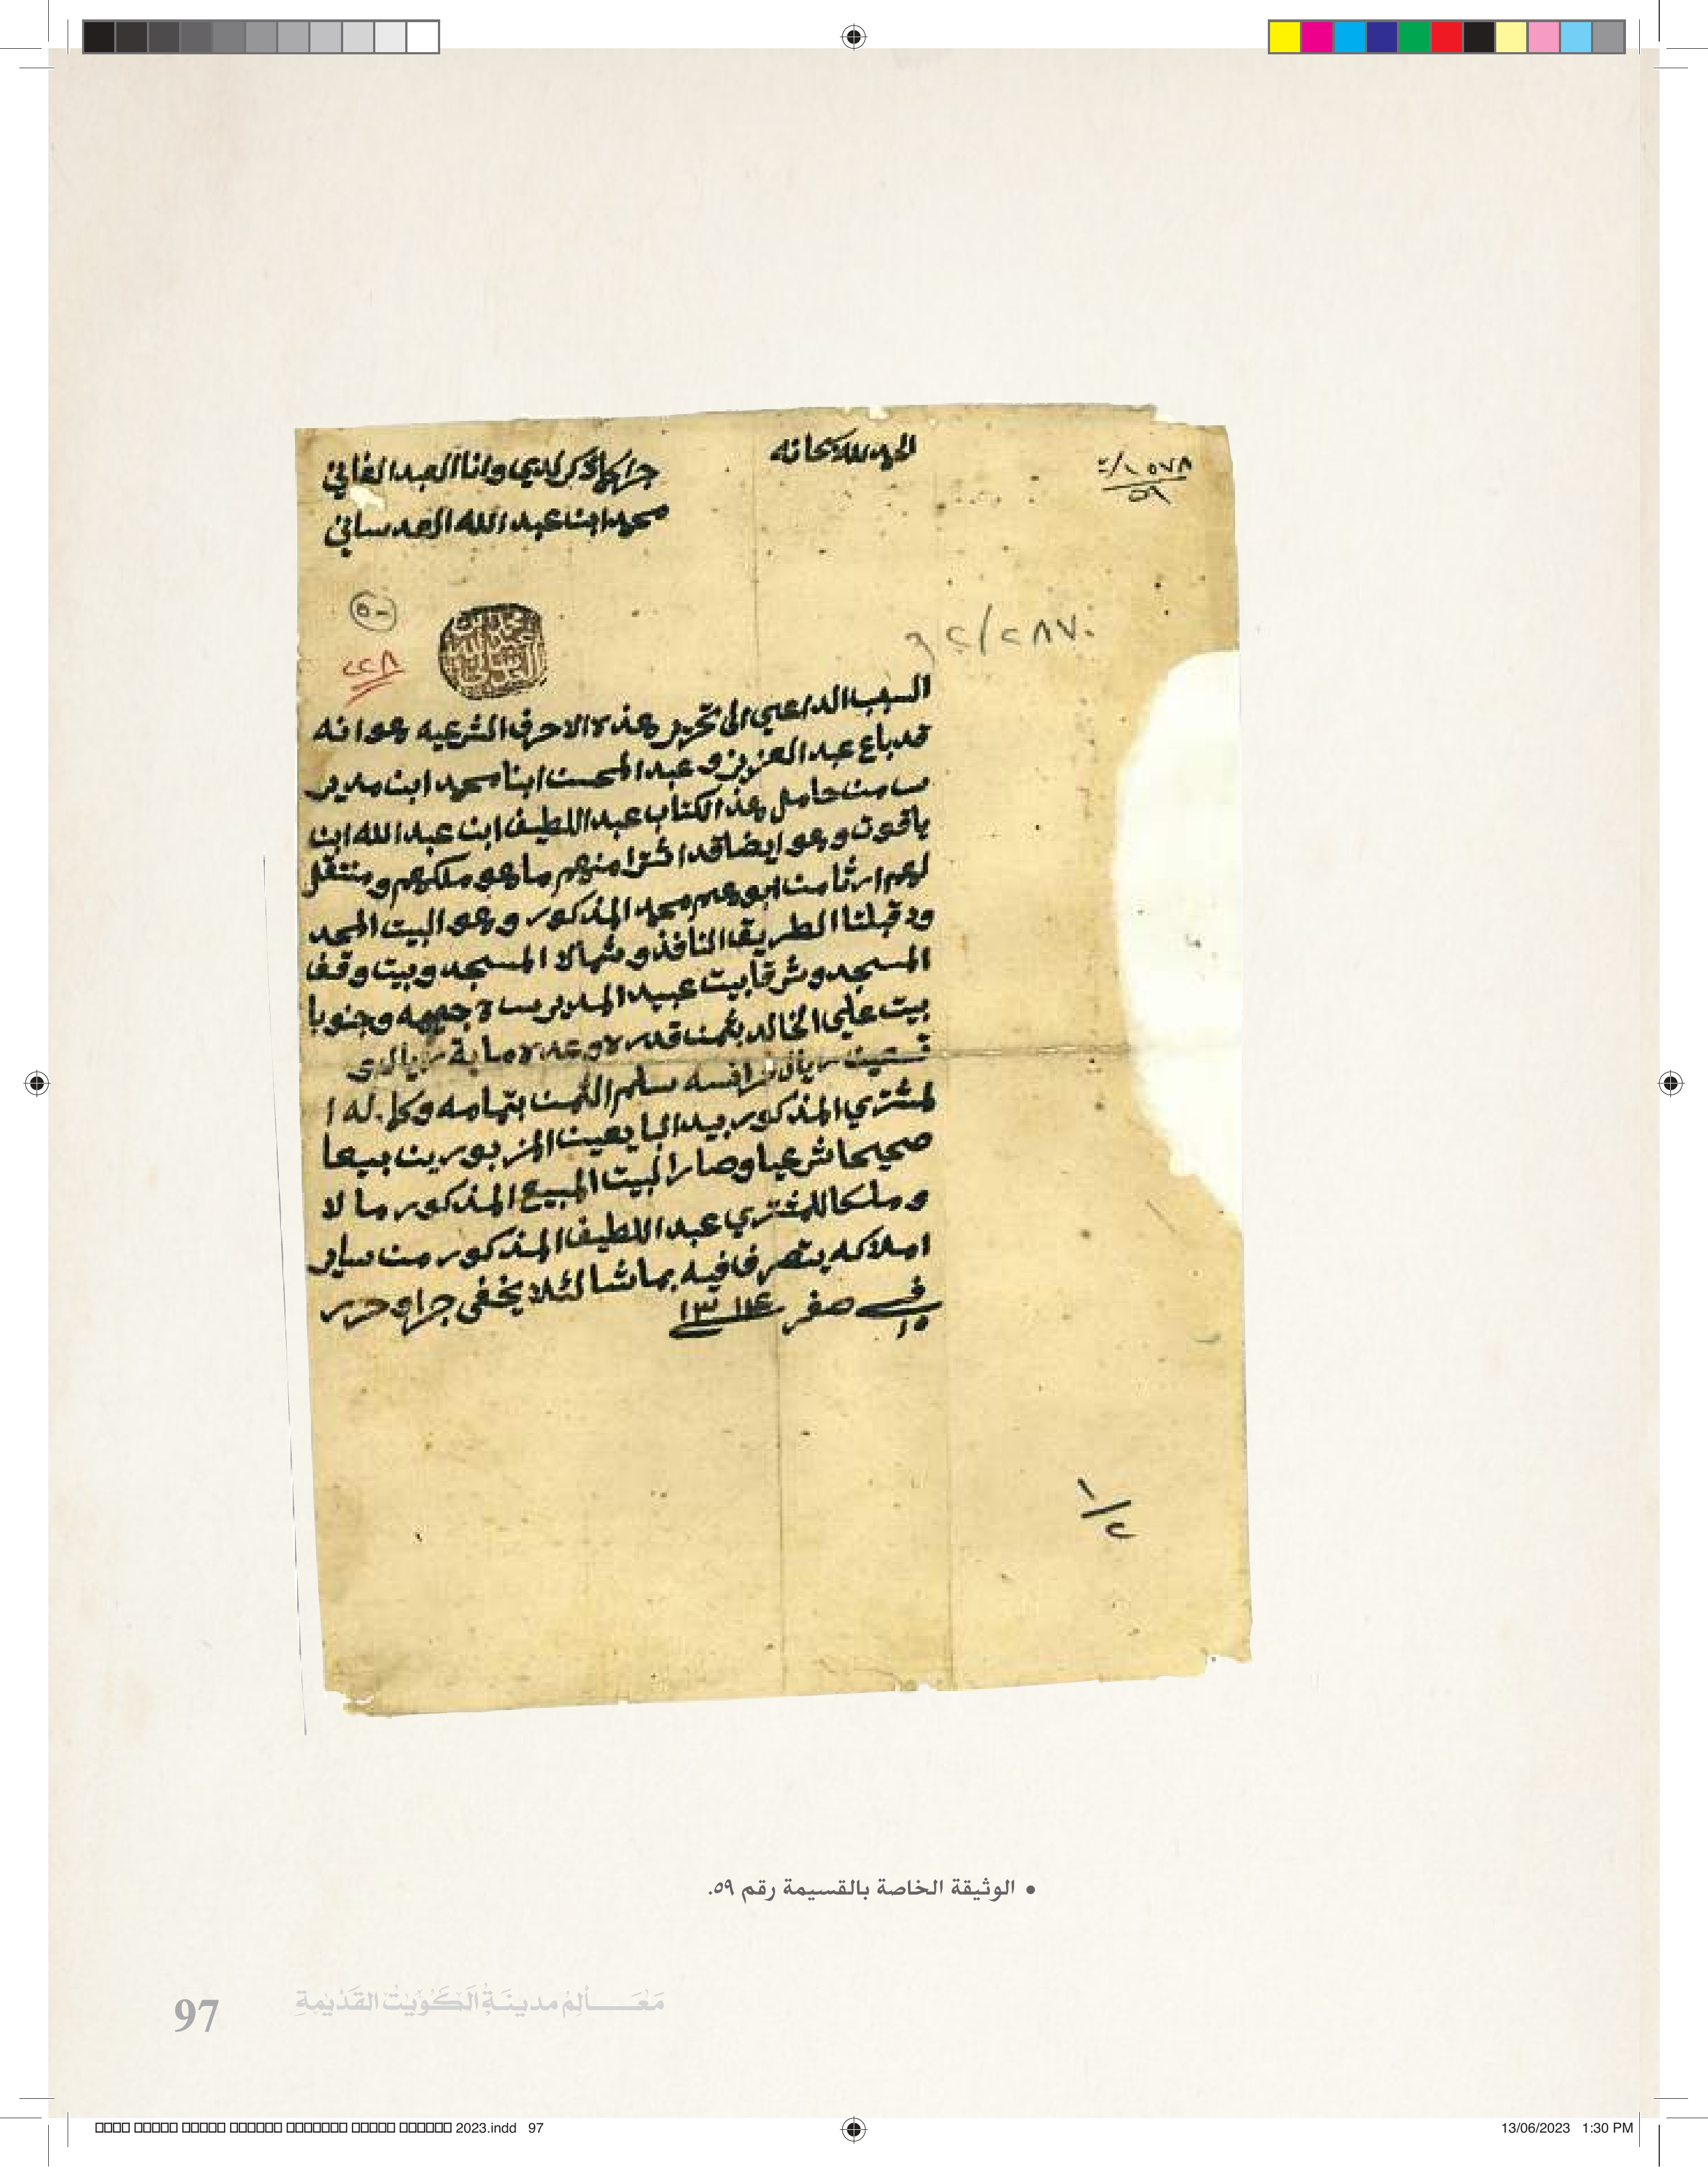 الحمد لله سبحانه
جرا ما ذكر لدي وانا العبد الفاني
محمد ابن عبد الله العدساني
٢٢٨
السبب الداعي الى تحرير هذه الاحرف الشرعيه هو انه
قد باع عبد العزيز و عبد المحسن ابنا محمد ابن مديرس
من حامل هذا الكتاب عبد اللطيف ابن عبد الله ابن
ياقوت وهو ايضا قد اشترا منهم ما هو ملكهم ومنتقل
لهم ارثا من ابوهم محمد المذكور وهو البيت المحد
ود قبلتا الطريق النافذ وشمالا المسجد وبيت وقف
المسجد وشرقا بيت عبيد المديرس وجنوبا
بيت علي الخالد بثمن قدره وعده ماية ريال و
تسعين ريال فرانسه سلم الثمن بتمامه وكماله ا
لمشتري المذكور بيد البايعين المزبورين بيعا
صحيحا شرعيا وصار البيت المبيع المذكور مالا
وملكا للمشتري عبد اللطيف المذكور من ساير
املاكه يتصرف فيه بما شا لئلا يخفى جرا وحرر
في ١٥ صفر ١٣١٤
١/٢
• الوثيقة الخاصة بالقسيمة رقم ٥٩.
مَعَـــالِمُ مدينَةِ الكُوَيْتِ القَدِيمَةِ
97
2023.indd 97
13/06/2023 1:30 PM